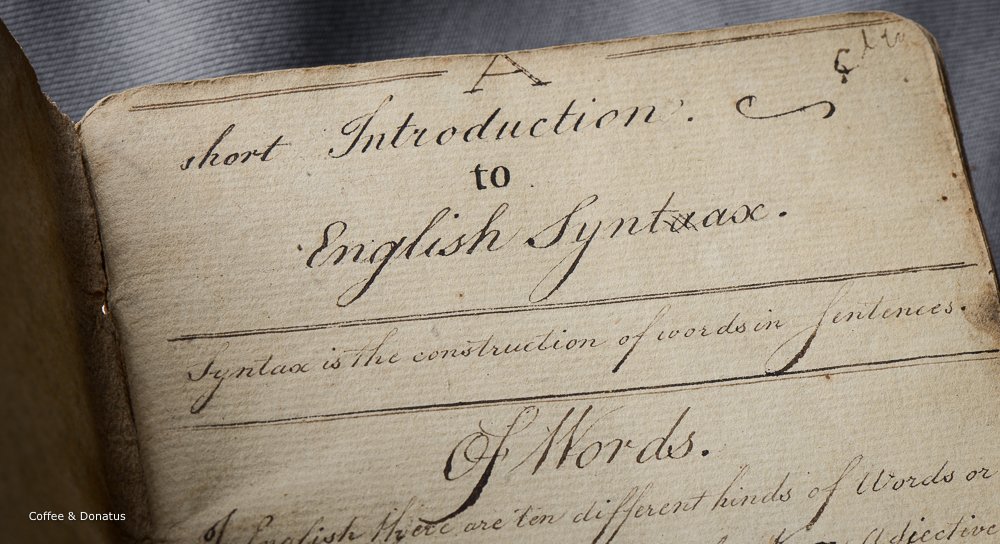 A
short Introduction.
to
English Syntax.
Syntax is the construction of words in Sentences.
Of Words.
In English there are ten different kinds of Words or
Adjective
Coffee & Donatus